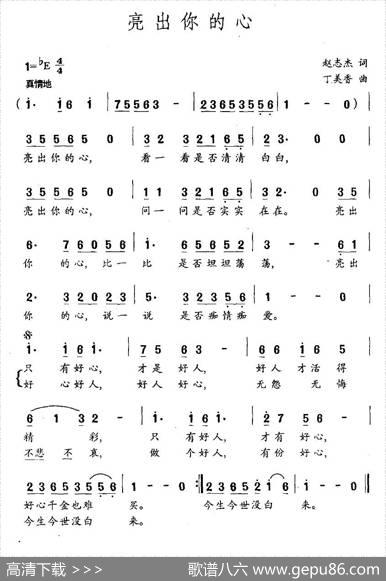 亮出你的心
1=♭E 4/4
赵志杰 词
真情地
丁美香 曲
(i· i6 i | 75563 - | 02365 3556 | 1 - - 0)
35565 0 | 32· 02 | 321 65 | 32 - 0
亮出你的心， 看一 看是否清清 白白，
35565 0 | 31· 01 | 321 65 | 32 - 0 35
亮出你的心， 问一 问是否实实 在在。 亮出
6· 76056 | i· 05 | 65 65 62 | 3 - - 61
你 的心，比一比 是否坦坦荡 荡， 亮出
2· 32023 | 5· 05 | 32356 | 1 - - 0
你 的心，说一说 是否痴情痴 爱。
i· i6i· | 75 63 | 66 i 276
只 有好心， 才是 好人， 好人 才活得
好 心好人， 好心 好人， 无怨 无悔
6 1 32 - | i· i61· | 2· 7 56
精 彩， 只 有好人， 才有 好心，
不悲 不哀， 做 个好人， 有份 好心，
02365 3556 | i - - 0 :‖ 02365 02 | i - - 0 ‖
好心千金也难 买。 今生今世没白 来。
今生今世没白 来。
高清下载 >>> 歌谱八六 www.gepu86.com